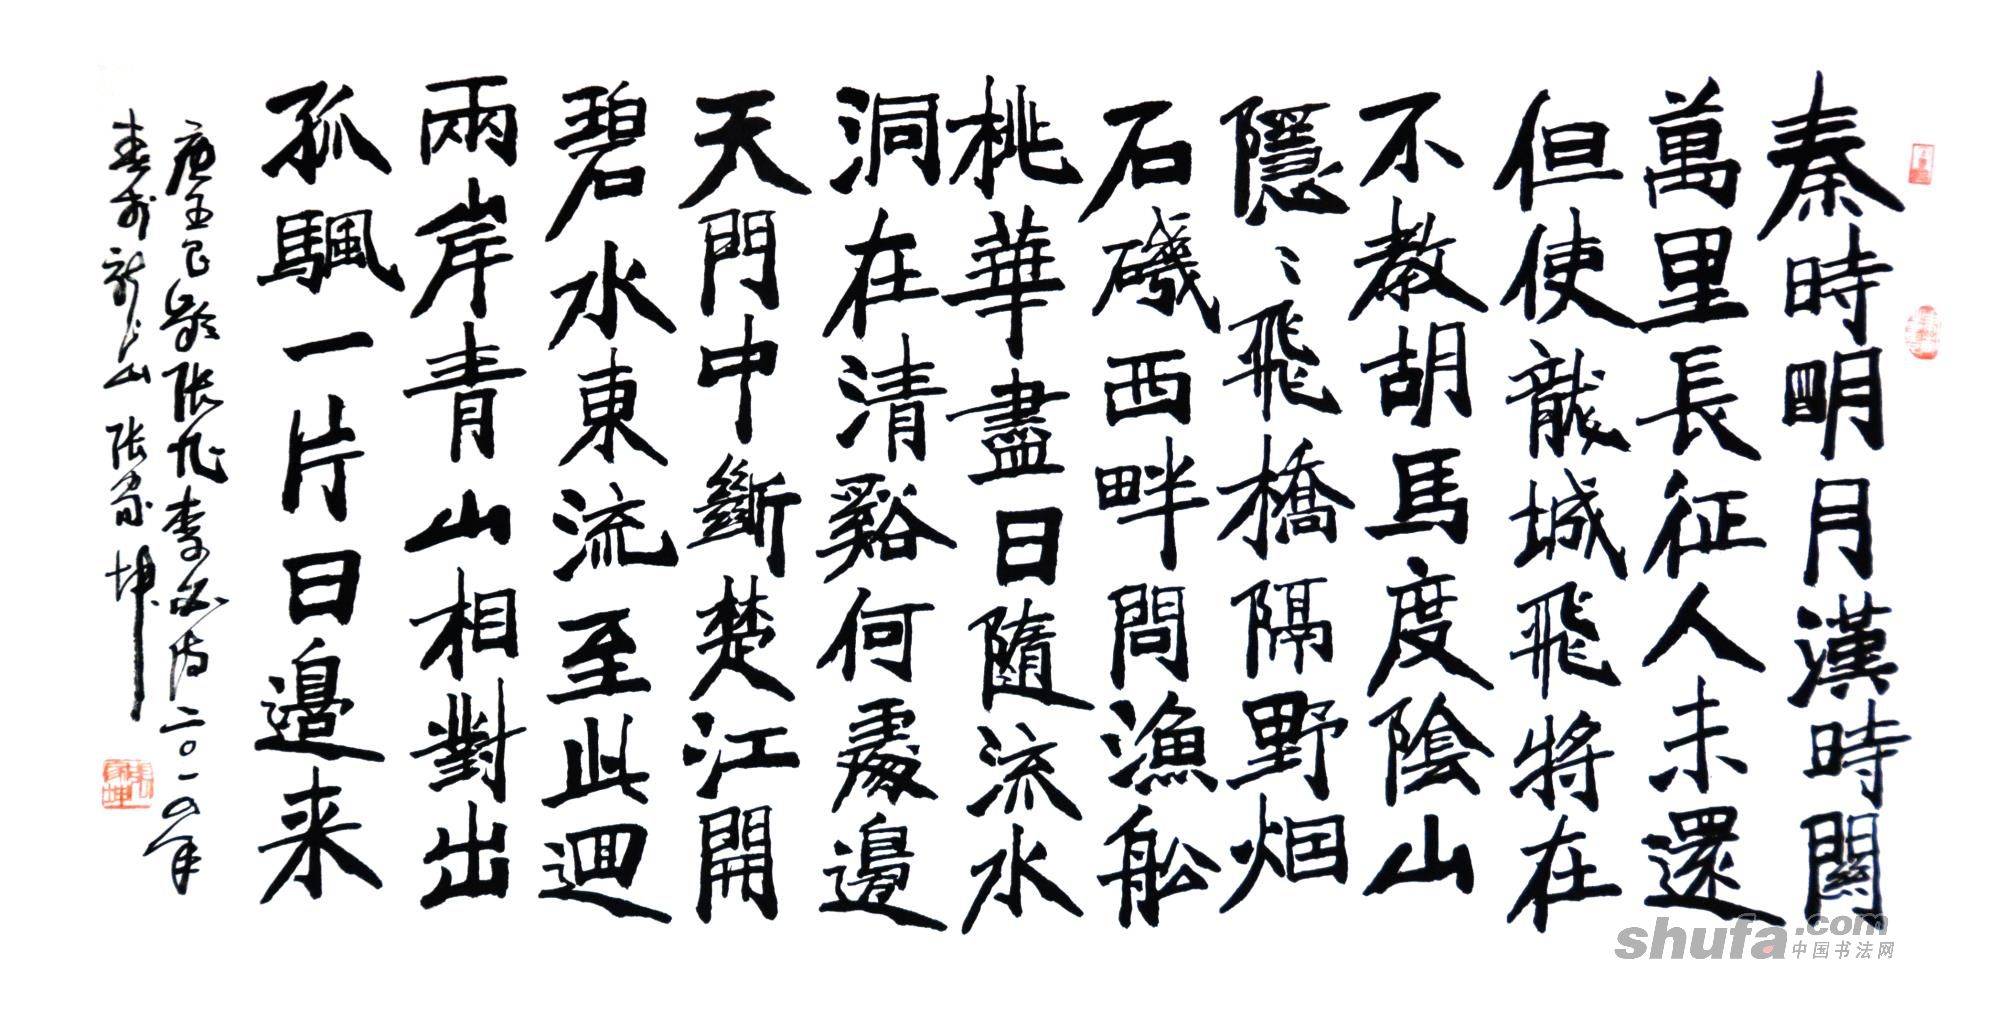 秦時明月漢時關
萬里長征人未還
但使龍城飛將在
不教胡馬度陰山
隱〻飛橋隔野烟
石磯西畔問漁船
桃華盡日隨流水
洞在清谿何處邊
天門中斷楚江開
碧水東流至此迴
兩岸青山相對出
孤颿一片日邊来
唐王昌齡張旭李白詩二〇一六年
張家坤
shufa.com
中国书法网